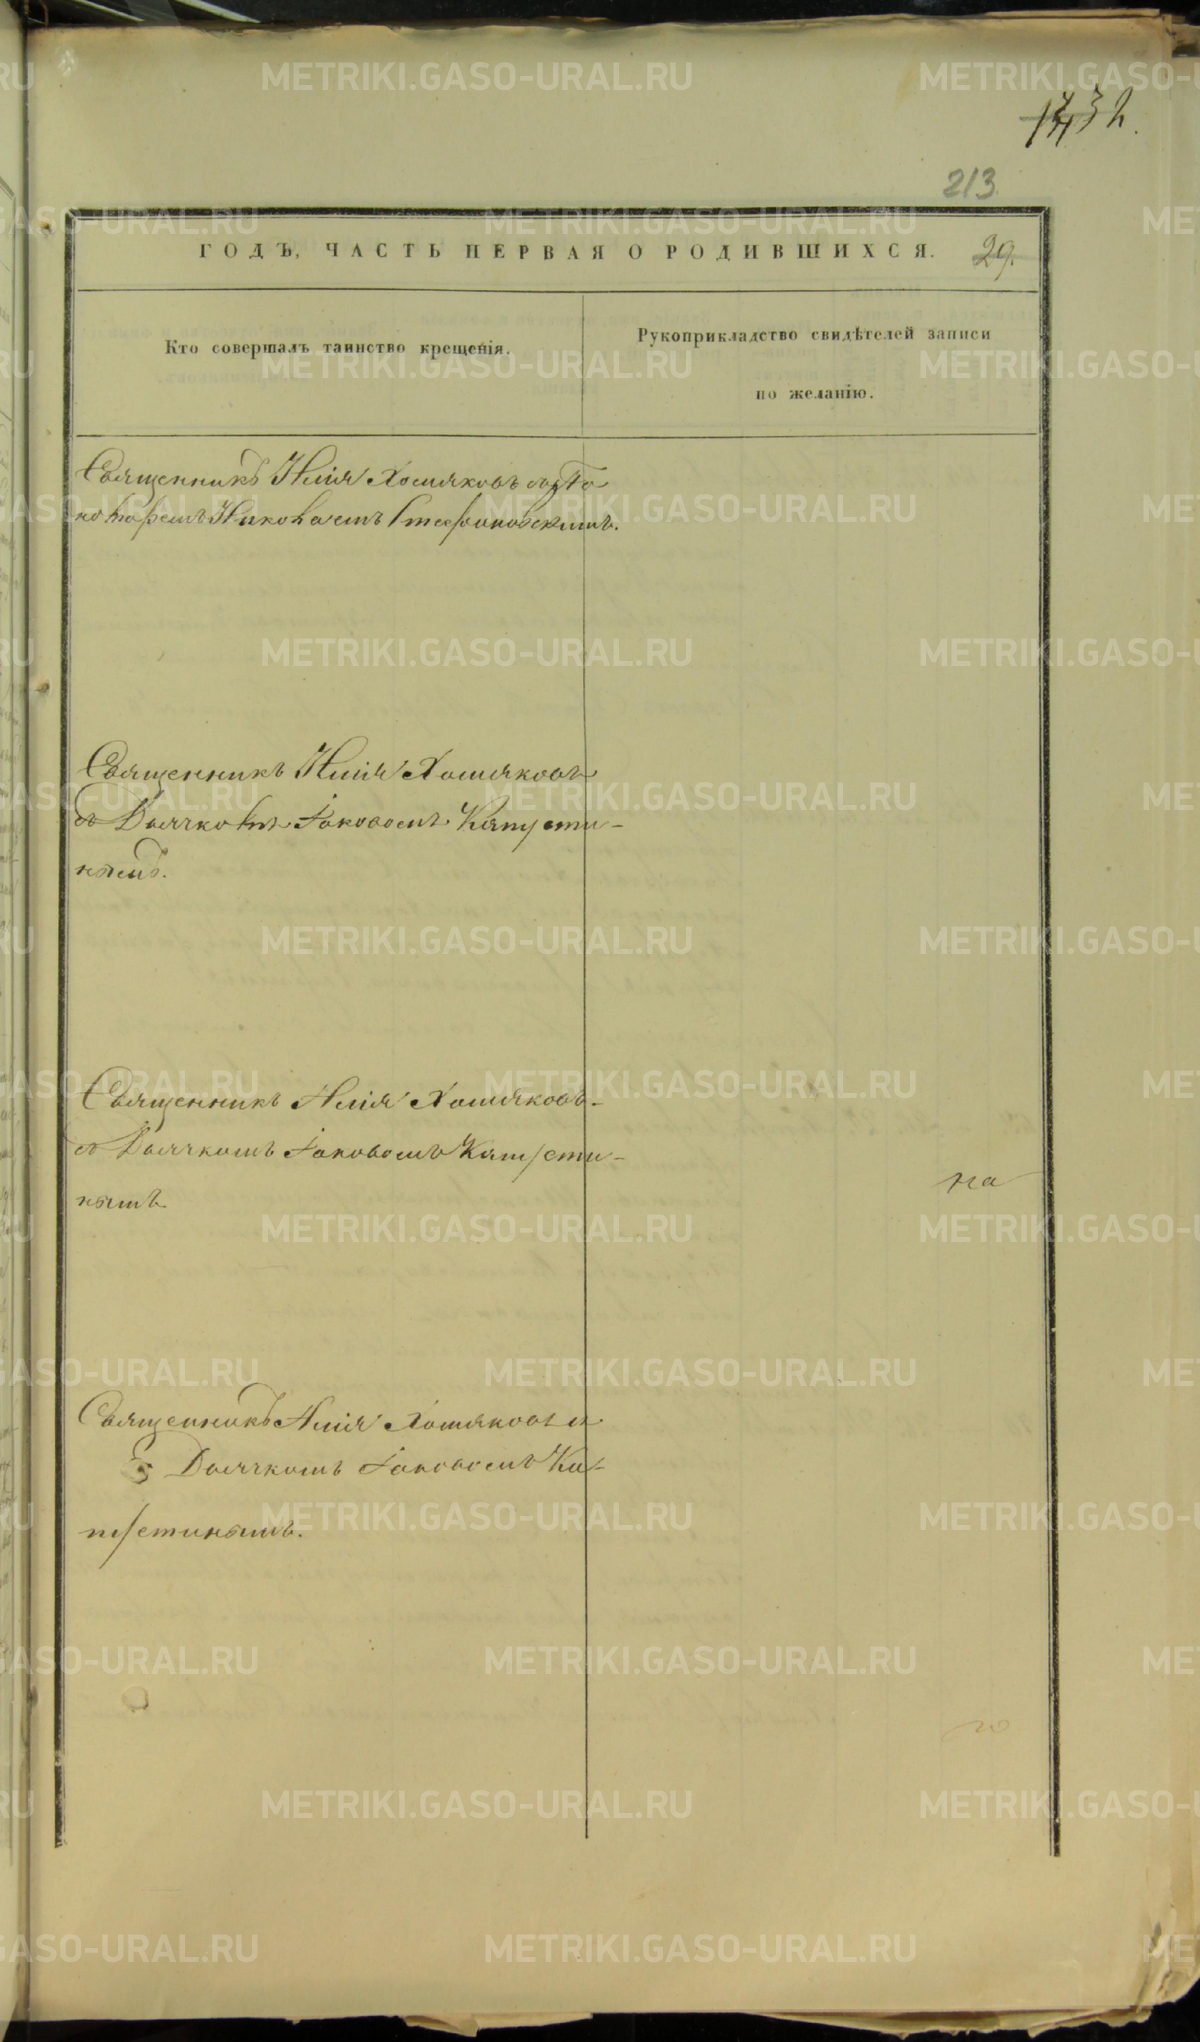 213
ГОДЪ, ЧАСТЬ ПЕРВАЯ О РОДИВШИХСЯ. 29.
Кто совершалъ таинство крещенія.
Рукоприкладство свидѣтелей записи
по желанію.
Священникъ Илія Хомяковъ съ По
номаремъ Николаемъ Стефановскимъ.
Священникъ Илія Хомяковъ
съ Дьячкомъ Іаковомъ Капусти-
нымъ.
Священникъ Илія Хомяковъ
съ Дьячкомъ Іаковомъ Капусти-
нымъ
на
Священникъ Илія Хомяковъ
съ Дьячкомъ Іаковомъ Ка-
пустинымъ.
METRIKI.GASO-URAL.RU